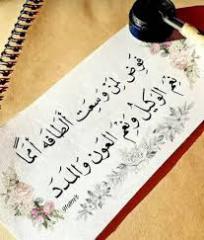 فوّض لمن وسعت ألطافه أممًا
نعم الوكيل ونعم العون والمدد